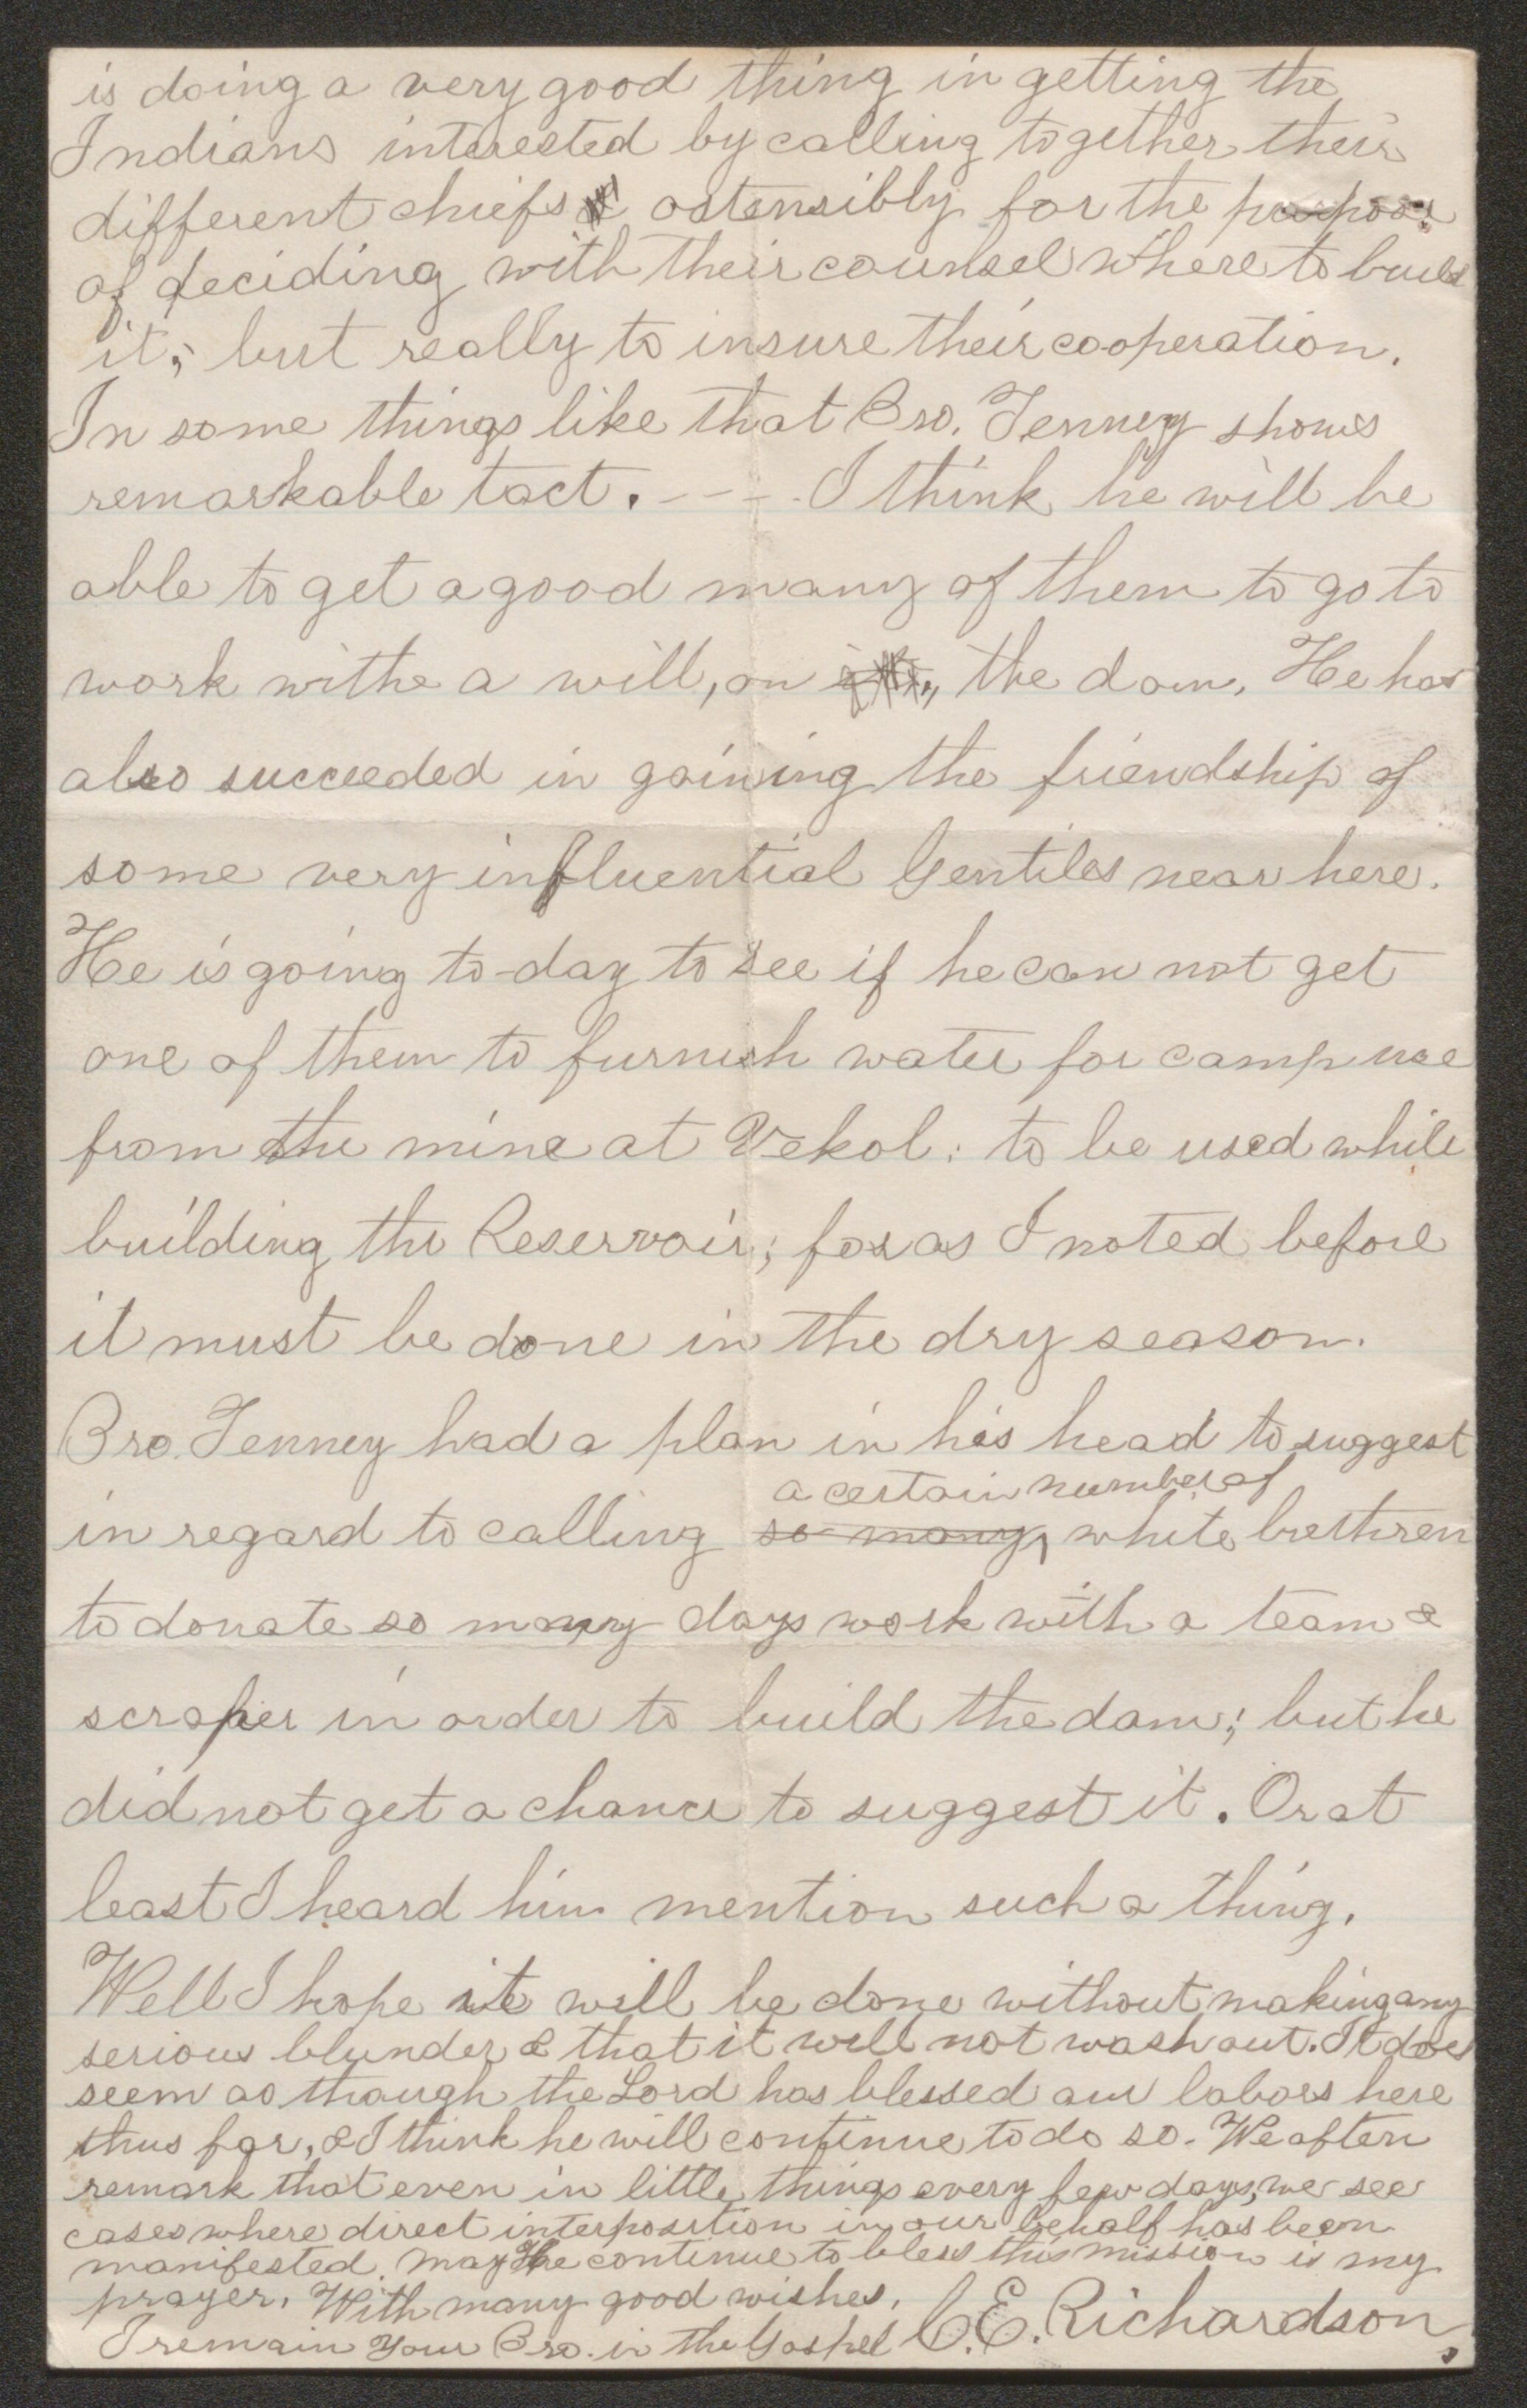 is doing a very good thing in getting the
Indians interested by calling together their
different chiefs ostensibly for the purpose
of deciding with their counsel where to build
it; but really to insure their cooperation.
In some things like that Bro. Tenney shows
remarkable tact. - - - I think he will be
able to get a good many of them to go to
work withe a will, on the dam. He has
also succeeded in gaining the friendship of
some very influential Gentiles near here.
He is going to-day to see if he can not get
one of them to furnish water for camp use
from the mine at Vekol: to be used while
building the Reservoir; for as I noted before
it must be done in the dry season.
Bro. Tenney had a plan in his head to suggest
a certain number of
in regard to calling so many white brethren
to donate so many days work with a team &
scraper in order to build the dam; but he
did not get a chance to suggest it. Or at
least I heard him mention such a thing.
Well I hope it will be done without making any
serious blunder & that it will not wash out. It does
seem as though the Lord has blessed our labors here
thus far, & I think he will continue to do so. We often
remark that even in little things every few days, we see
cases where direct interposition in our behalf has been
manifested. May He continue to bless this mission is my
prayer. With many good wishes,
I remain Your Bro. in the Gospel C. E. Richardson.